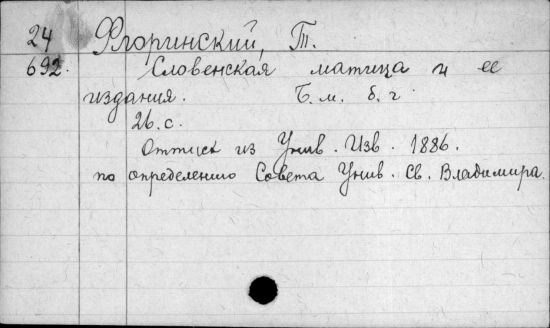 24 Флоринский, Т.
692. Словенская матица и ее
издания. Б.м. б.г.
26.с.
Оттиск из Унив. Изв. 1886.
по определению Совета Унив. Св. Владимира.